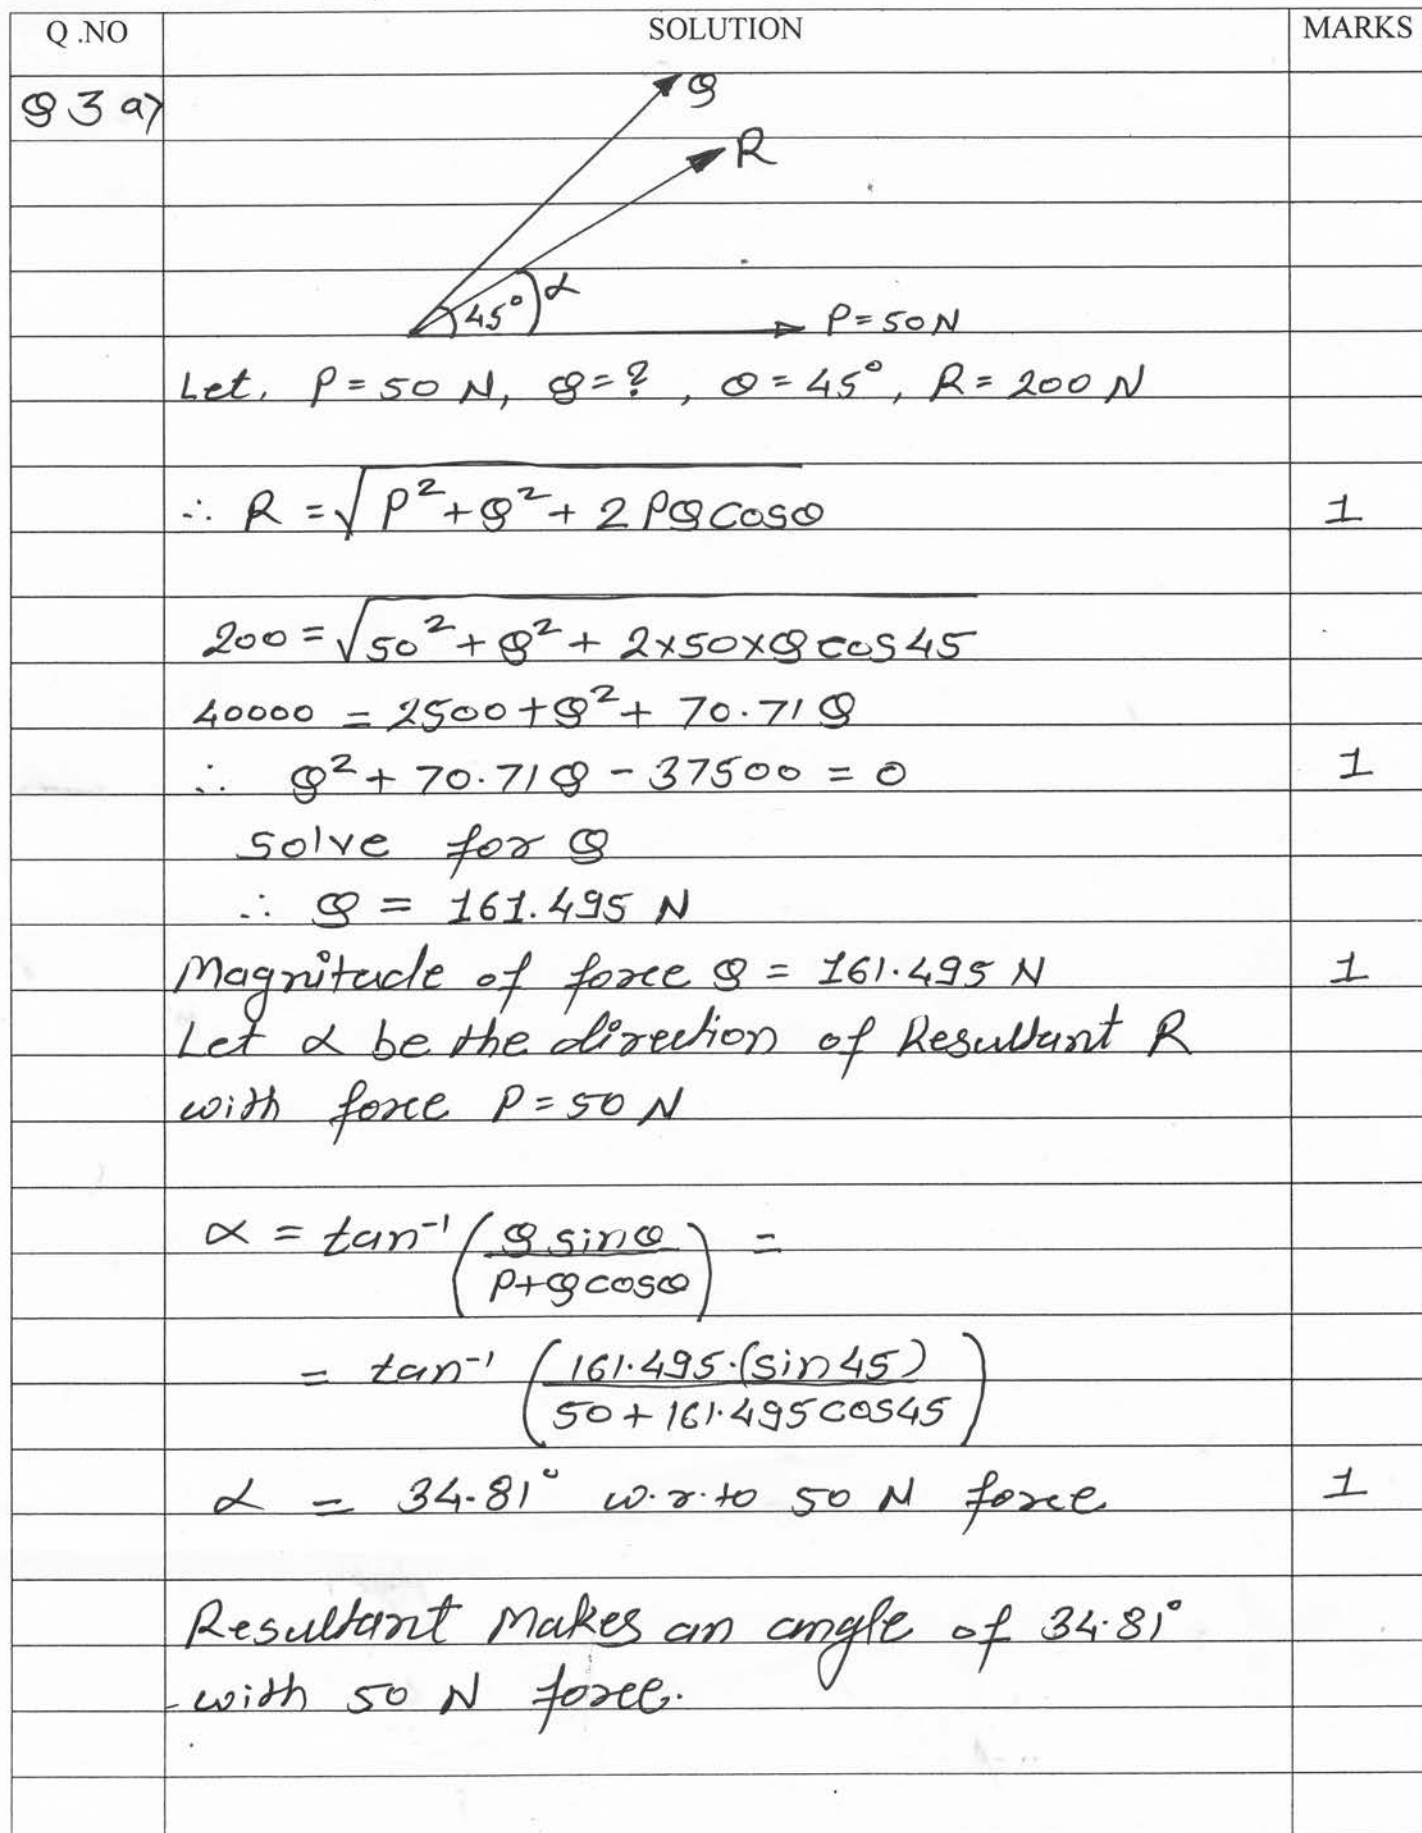 Q .NO SOLUTION MARKS
Q 3 a)
Q
R
45° α
P = 50 N
Let, P = 50 N, Q = ?, θ = 45°, R = 200 N
∴ R = √(P² + Q² + 2PQ cosθ) 1
200 = √(50² + Q² + 2×50×Q cos 45)
40000 = 2500 + Q² + 70.71 Q
∴ Q² + 70.71 Q - 37500 = 0 1
solve for Q
∴ Q = 161.495 N
Magnitude of force Q = 161.495 N 1
Let α be the direction of Resultant R
with force P = 50 N
α = tan⁻¹ (Q sinθ / P + Q cosθ) =
= tan⁻¹ (161.495.(sin 45) / 50 + 161.495 cos 45)
α = 34.81° w.r.to 50 N force 1
Resultant Makes an angle of 34.81°
with 50 N force.